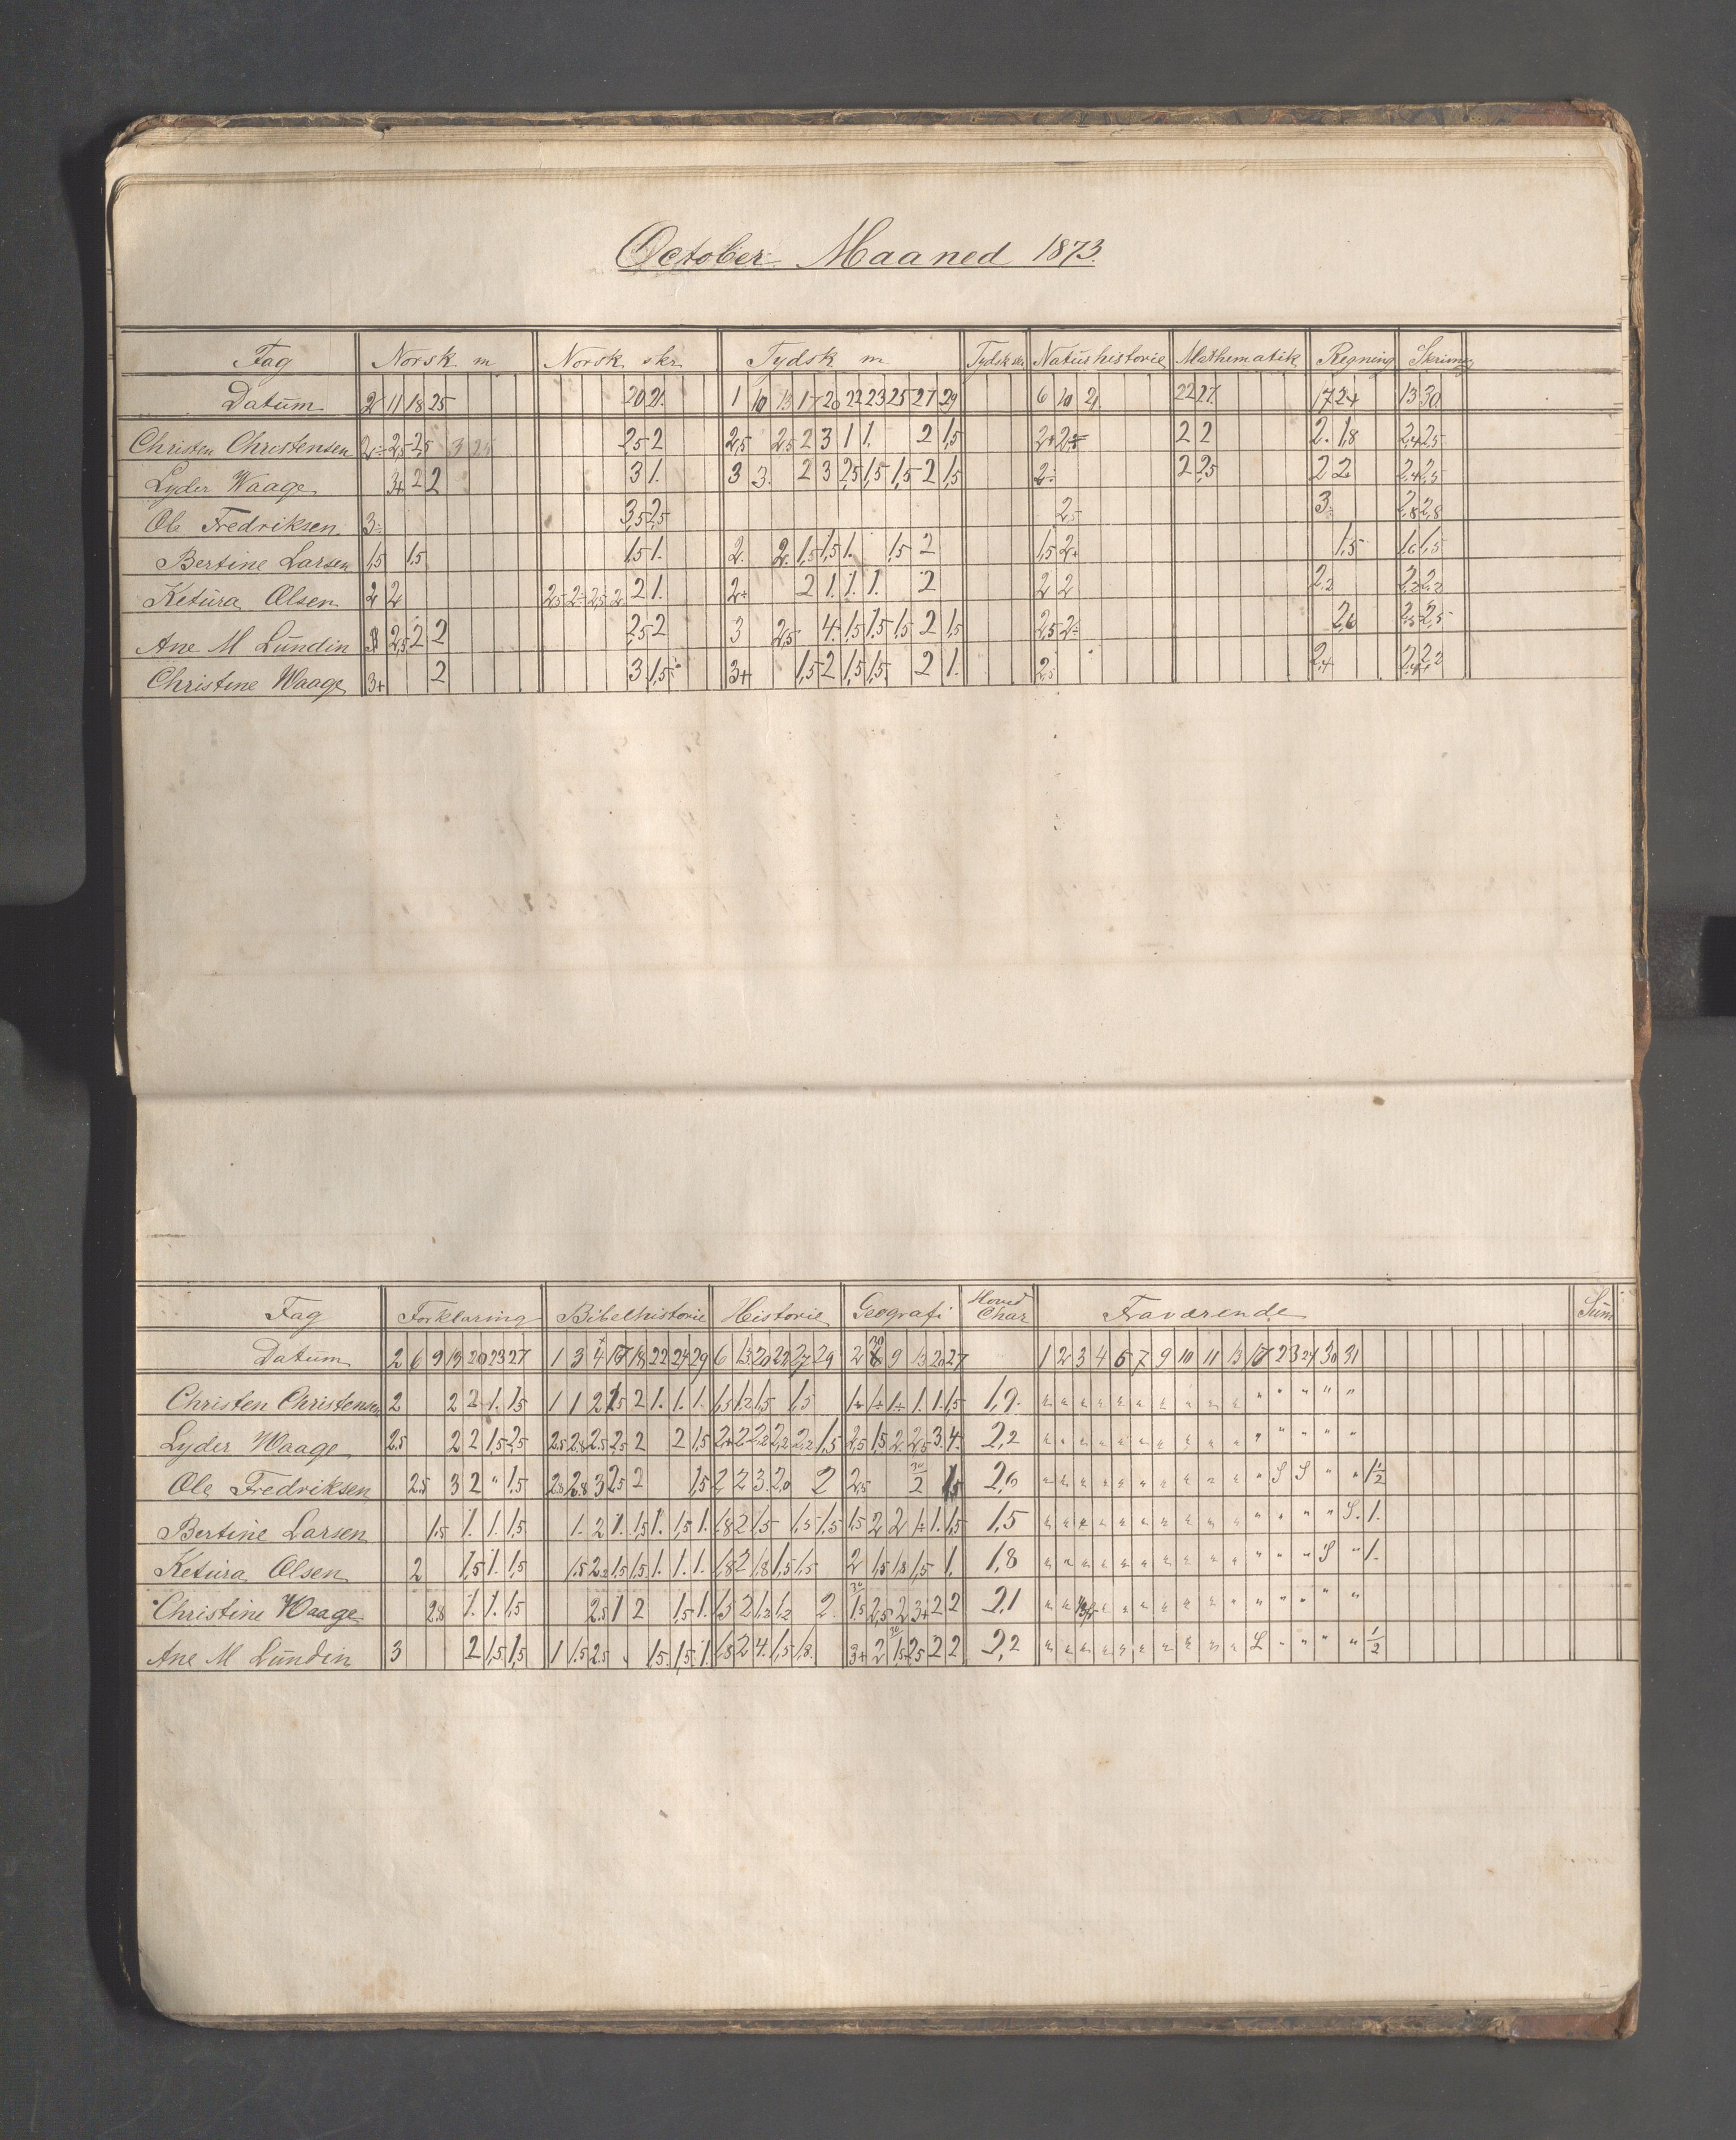 October Maaned 1873.
Fag Norsk m Norsk skr Tydsk m Tydsk skr Naturhistorie Mathematik Regning Skrivning
Datum 2 11 18 25 20 21. 1 10 13 17 20 22 23 25 27 29 6 10 21. 22 27. 17 24 13 30
Christen Christensen 2,5 2 2,5 2,5 2 3 1 1. 2 1,5 2 2 2. 1,8 2,4 2,5
Lyder Waage 3+ 2 2 3 1. 3 3. 2 3 2,5 1,5 1,5 2 1,5 2 2,5 2 2 2,4 2,5
Ole Fredriksen 3 3,5 2,5 2,5 3 2,8 2,8
Bertine Larsen 1,5 1,5 1,5 1. 2. 2. 1,5 1,5 1. 1,5 2 1,5 2+ 1,5 1,6 1,5
Ketura Olsen 2 2 2,5 2 2,5 2 2 1. 2+ 2 1. 1. 1. 2 2 2 2,2 2,2 2,2
Ane M Lundin 2,5 2 2 2,5 2 3 2,5 4. 1,5 1,5 1,5 2 1,5 2,5 2 2,6 2,5 2,5
Christine Waage 3+ 2 3 1,5 3+ 1,5 2 1,5 1,5 2 1. 2,5 2,4 2,4 2,2
Fag Forklaring Bibelhistorie Historie Geografi Hoved Char Fraværende Sum
Datum 2 6 9 13 20 23 27 1 3 4 17 18 22 24 29 6 13 20 22 27 29 2 9 13 20 27 1 2 3 4 6 7 9 10 11 13 17 23 24 30 31
Christen Christensen 2 2 2 1. 1,5 1 1 2 1,5 2 1. 1. 1. 1,5 1,2 1,5 1,5 1+ 1+ 1+ 1. 1. 1,5 1,9.
Lyder Waage 2,5 2 2 1,5 2,5 2,5 2,8 2,5 2,5 2 2 1,5 2+ 2 2,2 2,2 2,2 1,5 2,5 1,5 2. 2,5 3. 4. 2,2
Ole Fredriksen 2,5 3 2 " 1,5 2,8 2,8 3 2,5 2 1,5 2 2 3. 2,0 2 2,5 2 1,5 2,6 S S 1 1/2
Bertine Larsen 1,5 1. 1. 1,5 1. 2 1. 1,5 1. 1,5 1. 1,8 2 1,5 1,5 1,5 1,5 2 2 1+ 1. 1,5 1,5 S. 1.
Ketura Olsen 2 1,5 1. 1,5 1,5 2,2 1,5 1,5 1. 1. 1. 1,8 2 1,8 1,5 1,5 2 1,5 1,8 1,5 1. 1,8 S 1.
Christine Waage 2,8 1. 1. 1,5 2,5 1 2 1,5 1. 1,5 2 1,2 1,2 2. 1,5 2,5 2 3+ 2 2 2,1
Ane M Lundin 3 2 1,5 1,5 1 1,5 2,5 1,5 1,5 1. 1,8 2 4. 1,5 1,8. 3+ 2 1,5 2,5 2 2 2,2 1/2